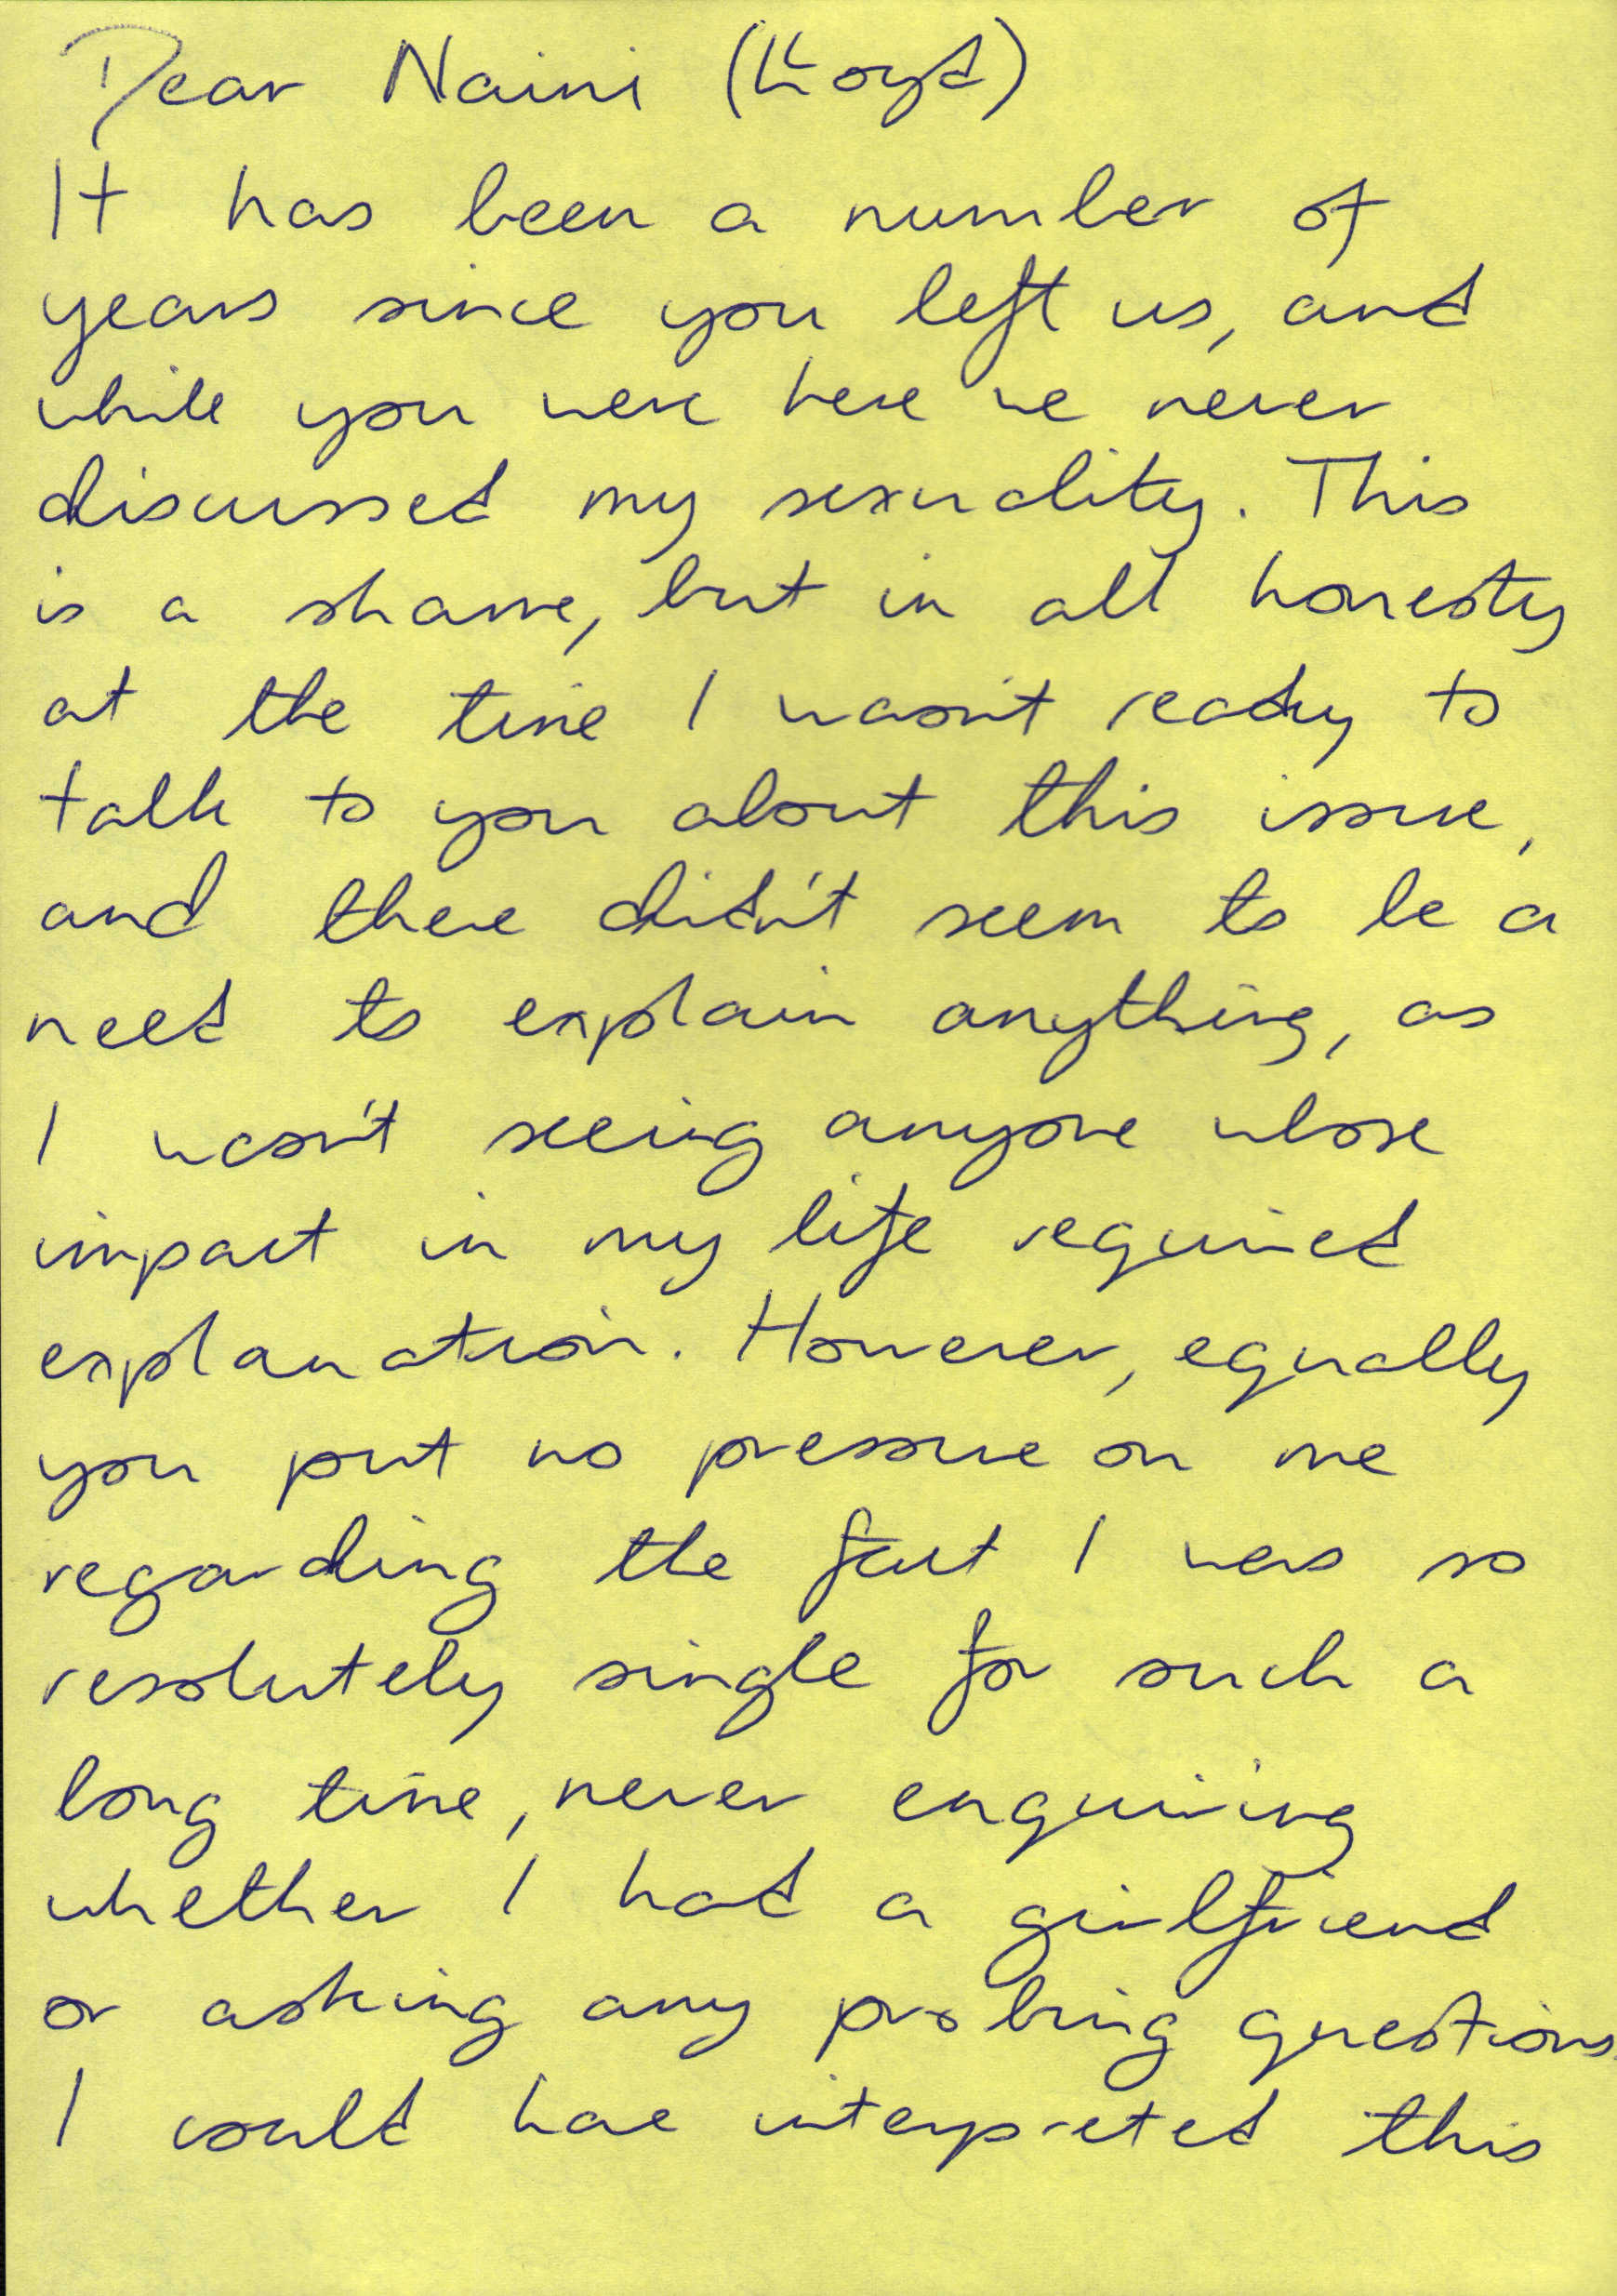 Dear Naini (Lloyd)
It has been a number of
years since you left us, and
while you were here we never
discussed my sexuality. This
is a shame, but in all honesty
at the time I wasn't ready to
talk to you about this issue,
and there didn't seem to be a
need to explain anything, as
I wasn't seeing anyone whose
impact in my life required
explanation. However, equally
you put no pressure on me
regarding the fact I was so
resolutely single for such a
long time, never enquiring
whether I had a girlfriend
or asking any probing questions.
I could have interpreted this